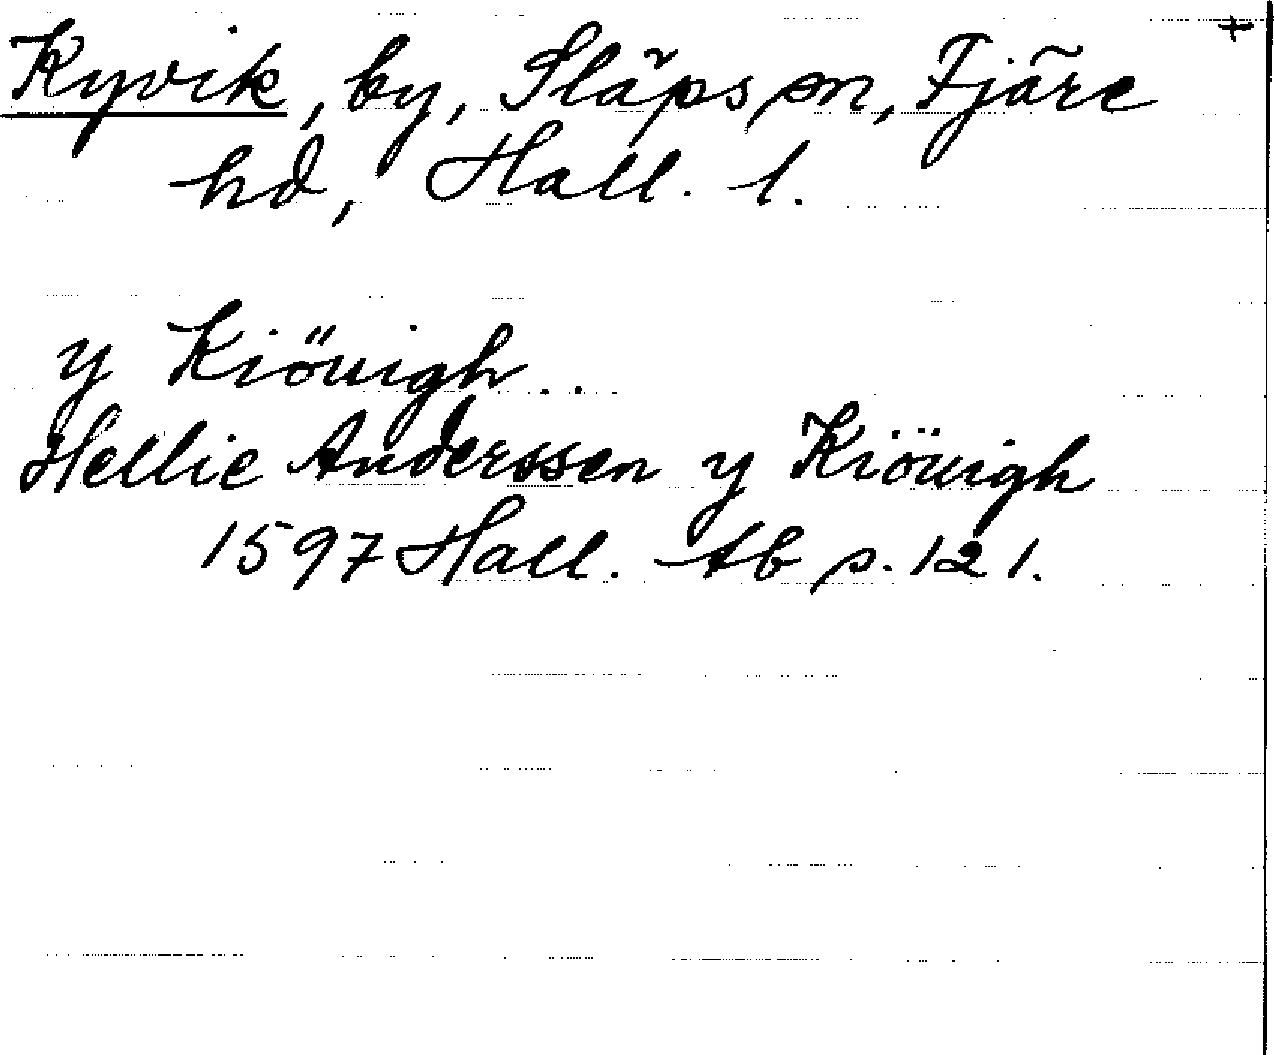 +
Kyvik, by, Släps sn, Fjäre
hd, Hall. l.
y Kiöuigh..
Hellie Anderssen y Kiöuigh
1597 Hall. Ab s. 121.